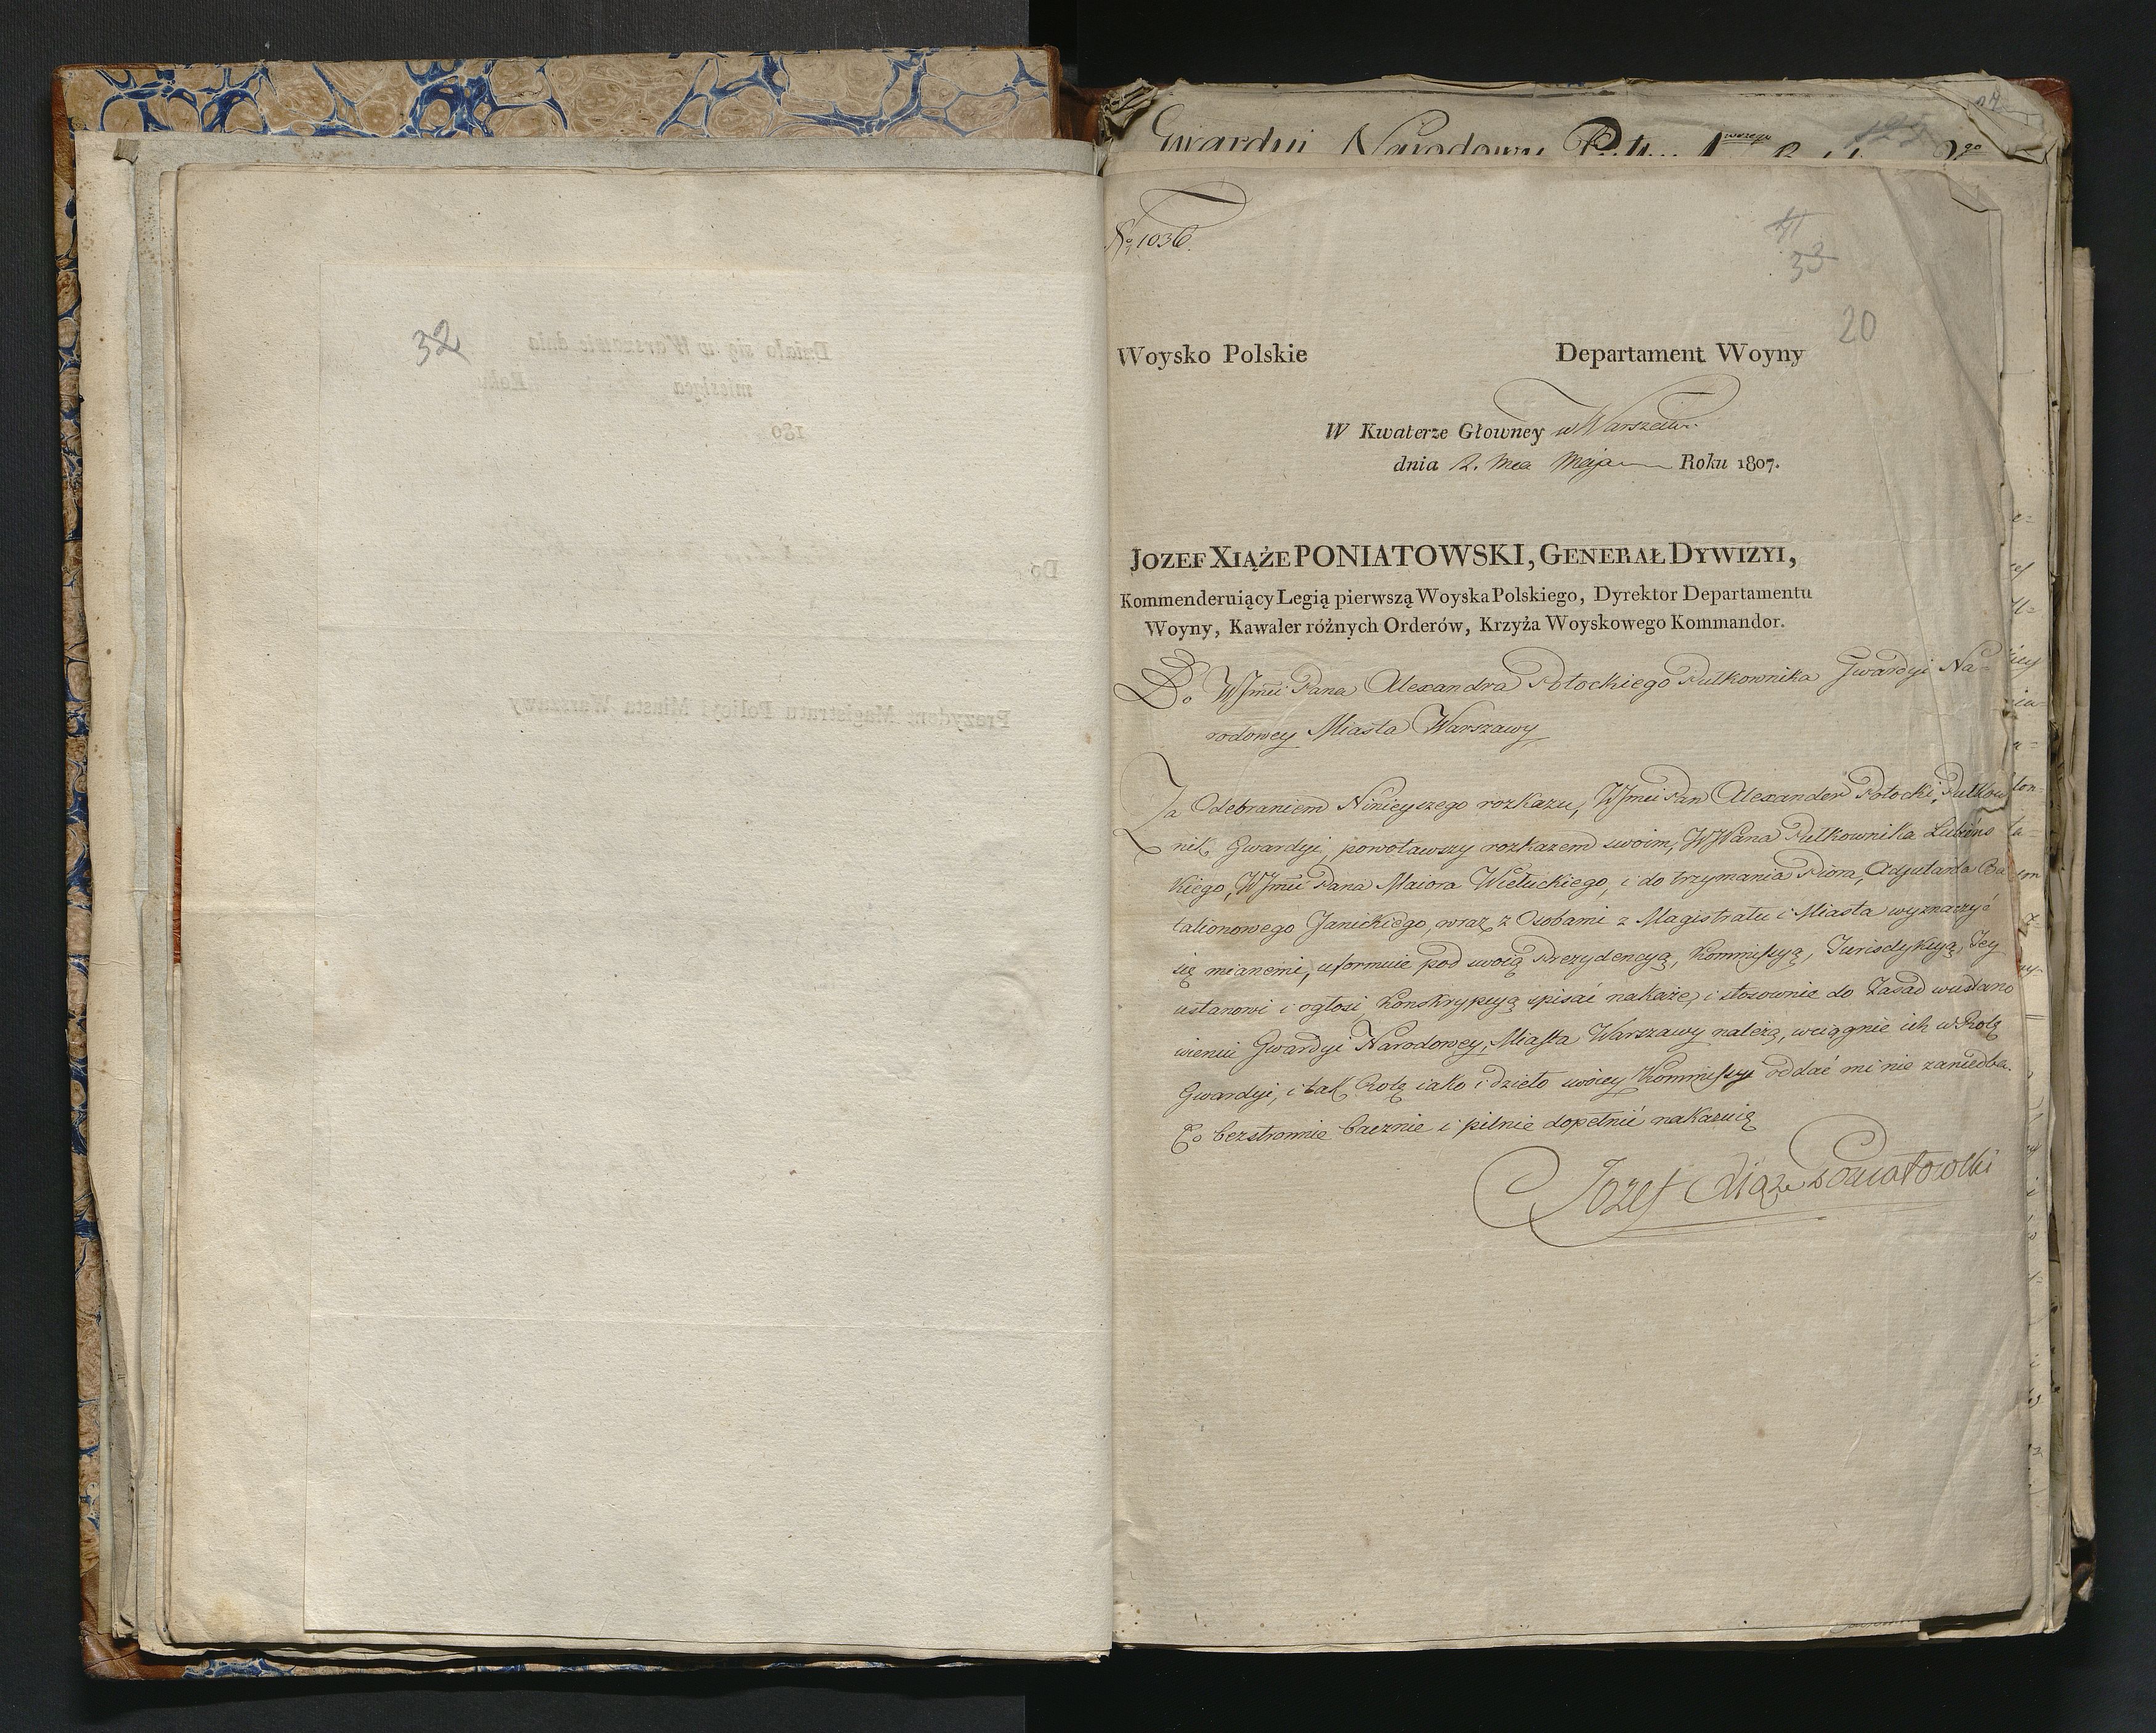 32
Gwardyi Narodowy
№ 1036.
33
20
Woysko Polskie Departament Woyny
W Kwaterze Głowney w Warszawie
dnia 2. mca Maja Roku 1807.
JOZEF XIĄŻE PONIATOWSKI, GENERAŁ DYWIZYI,
Kommenderuiący Legią pierwszą Woyska Polskiego, Dyrektor Departamentu
Woyny, Kawaler różnych Orderów, Krzyża Woyskowego Kommandor.
Do WJmći Pana Alexandra Potockiego Pułkownika Gwardyi Na=
rodowey Miasta Warszawy
Za Odebraniem Ninieyszego rozkazu, WJmći Pan Alexander Potocki, Pułkow
nik Gwardyi, powoławszy rozkazem swoim, WWPana Pułkownika Lubins
kiego, WJmći Pana Maiora Wieluckiego, i do trzymania Piora, Adjutanta Ba
talionowego Janickiego, wraz z Osobami z Magistratu i Miasta wyznaczyć
się mianemi, uformuie pod swoią Prezydencyą, Kommissyą, Jurisdykcyą, Jey
ustanowi i ogłosi, Konskrypcyą spisać nakaże, i stosownie do Zasad w ustano
wieniu Gwardyi Narodowey, Miasta Warszawy należą, wciągnie ich w Rolę
Gwardyi, i tak Rolę iako i dzieło swóiey Kommissyi oddać mi nie zaniedba.
Co bezstronnie bacznie i pilnie dopełnić nakazuię
Jozef Xiąże Poniatowski